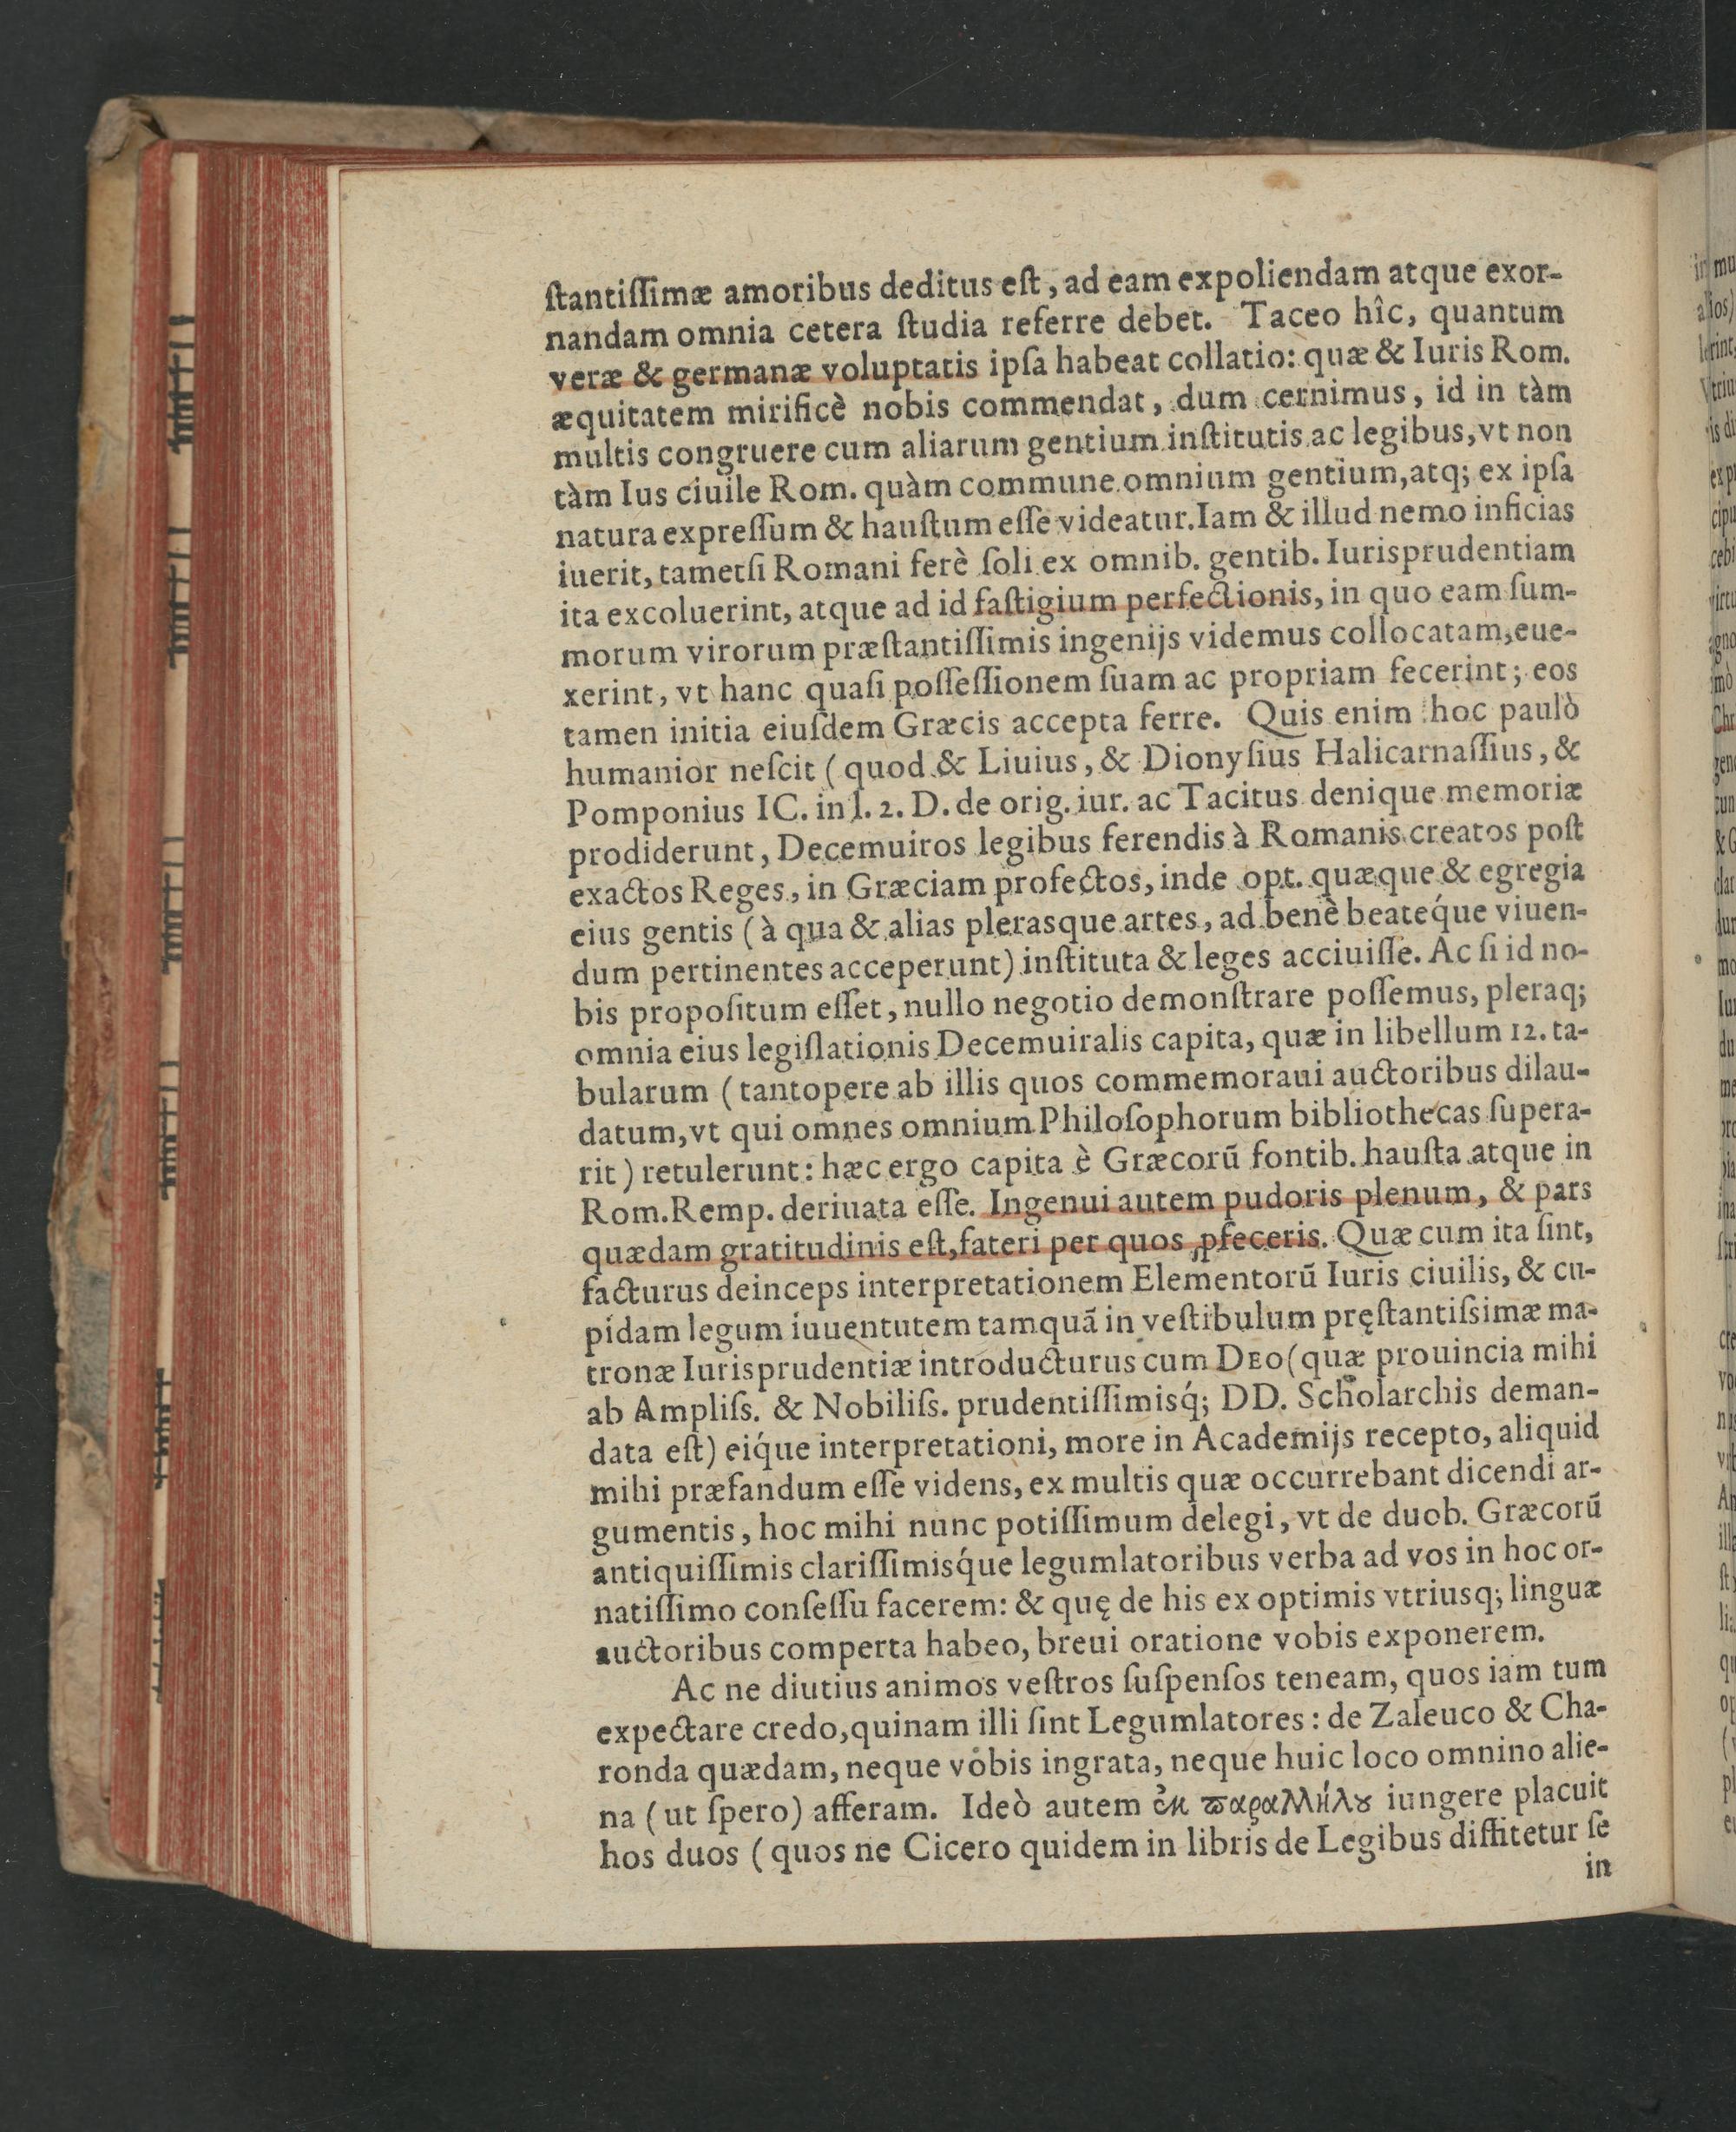 ſtantiſſimæ amoribus deditus eſt, ad eam expoliendam atque exor-
nandam omnia cetera ſtudia referre debet. Taceo hîc, quantum
veræ & germanæ voluptatis ipſa habeat collatio: quæ & Iuris Rom.
æquitatem mirificè nobis commendat, dum cernimus, id in tàm
multis congruere cum aliarum gentium inſtitutis ac legibus, vt non
tàm Ius ciuile Rom. quàm commune omnium gentium, atq; ex ipſa
natura expreſſum & hauſtum eſſe videatur. Iam & illud nemo inficias
iuerit, tametſi Romani ferè ſoli ex omnib. gentib. Iurisprudentiam
ita excoluerint, atque ad id faſtigium perfectionis, in quo eam ſum-
morum virorum præſtantiſſimis ingenijs videmus collocatam, eue-
xerint, vt hanc quaſi poſſeſſionem ſuam ac propriam fecerint; eos
tamen initia eiuſdem Græcis accepta ferre. Quis enim hoc paulò
humanior neſcit (quod & Liuius, & Dionyſius Halicarnaſſius, &
Pomponius IC. in l. 2. D. de orig. iur. ac Tacitus denique memoriæ
prodiderunt, Decemuiros legibus ferendis à Romanis creatos poſt
exactos Reges, in Græciam profectos, inde opt. quæque & egregia
eius gentis (à qua & alias plerasque artes, ad benè beateq́ue viuen-
dum pertinentes acceperunt) inſtituta & leges acciuiſſe. Ac ſi id no-
bis propoſitum eſſet, nullo negotio demonſtrare poſſemus, pleraq;
omnia eius legiſlationis Decemuiralis capita, quæ in libellum 12. ta-
bularum (tantopere ab illis quos commemoraui auctoribus dilau-
datum, vt qui omnes omnium Philoſophorum bibliothecas ſupera-
rit) retulerunt: hæc ergo capita è Græcorũ fontib. hauſta atque in
Rom. Remp. deriuata eſſe. Ingenui autem pudoris plenum, & pars
quædam gratitudinis eſt, fateri per quos ꝓfeceris. Quæ cum ita ſint,
facturus deinceps interpretationem Elementorũ Iuris ciuilis, & cu-
pidam legum iuuentutem tamquã in veſtibulum pręſtantiſsimæ ma-
tronæ Iurisprudentiæ introducturus cum DEO (quæ prouincia mihi
ab Ampliſs. & Nobiliſs. prudentiſſimisq́; DD. Scholarchis deman-
data eſt) eiq́ue interpretationi, more in Academijs recepto, aliquid
mihi præfandum eſſe videns, ex multis quæ occurrebant dicendi ar-
gumentis, hoc mihi nunc potiſſimum delegi, vt de duob. Græcorũ
antiquiſſimis clariſſimisq́ue legumlatoribus verba ad vos in hoc or-
natiſſimo conſeſſu facerem: & quę de his ex optimis vtriusq; linguæ
auctoribus comperta habeo, breui oratione vobis exponerem.
Ac ne diutius animos veſtros ſuſpenſos teneam, quos iam tum
expectare credo, quinam illi ſint Legumlatores: de Zaleuco & Cha-
ronda quædam, neque vobis ingrata, neque huic loco omnino alie-
na (ut ſpero) afferam. Ideò autem ἐκ παραλλήλου iungere placuit
hos duos (quos ne Cicero quidem in libris de Legibus diffitetur ſe
in